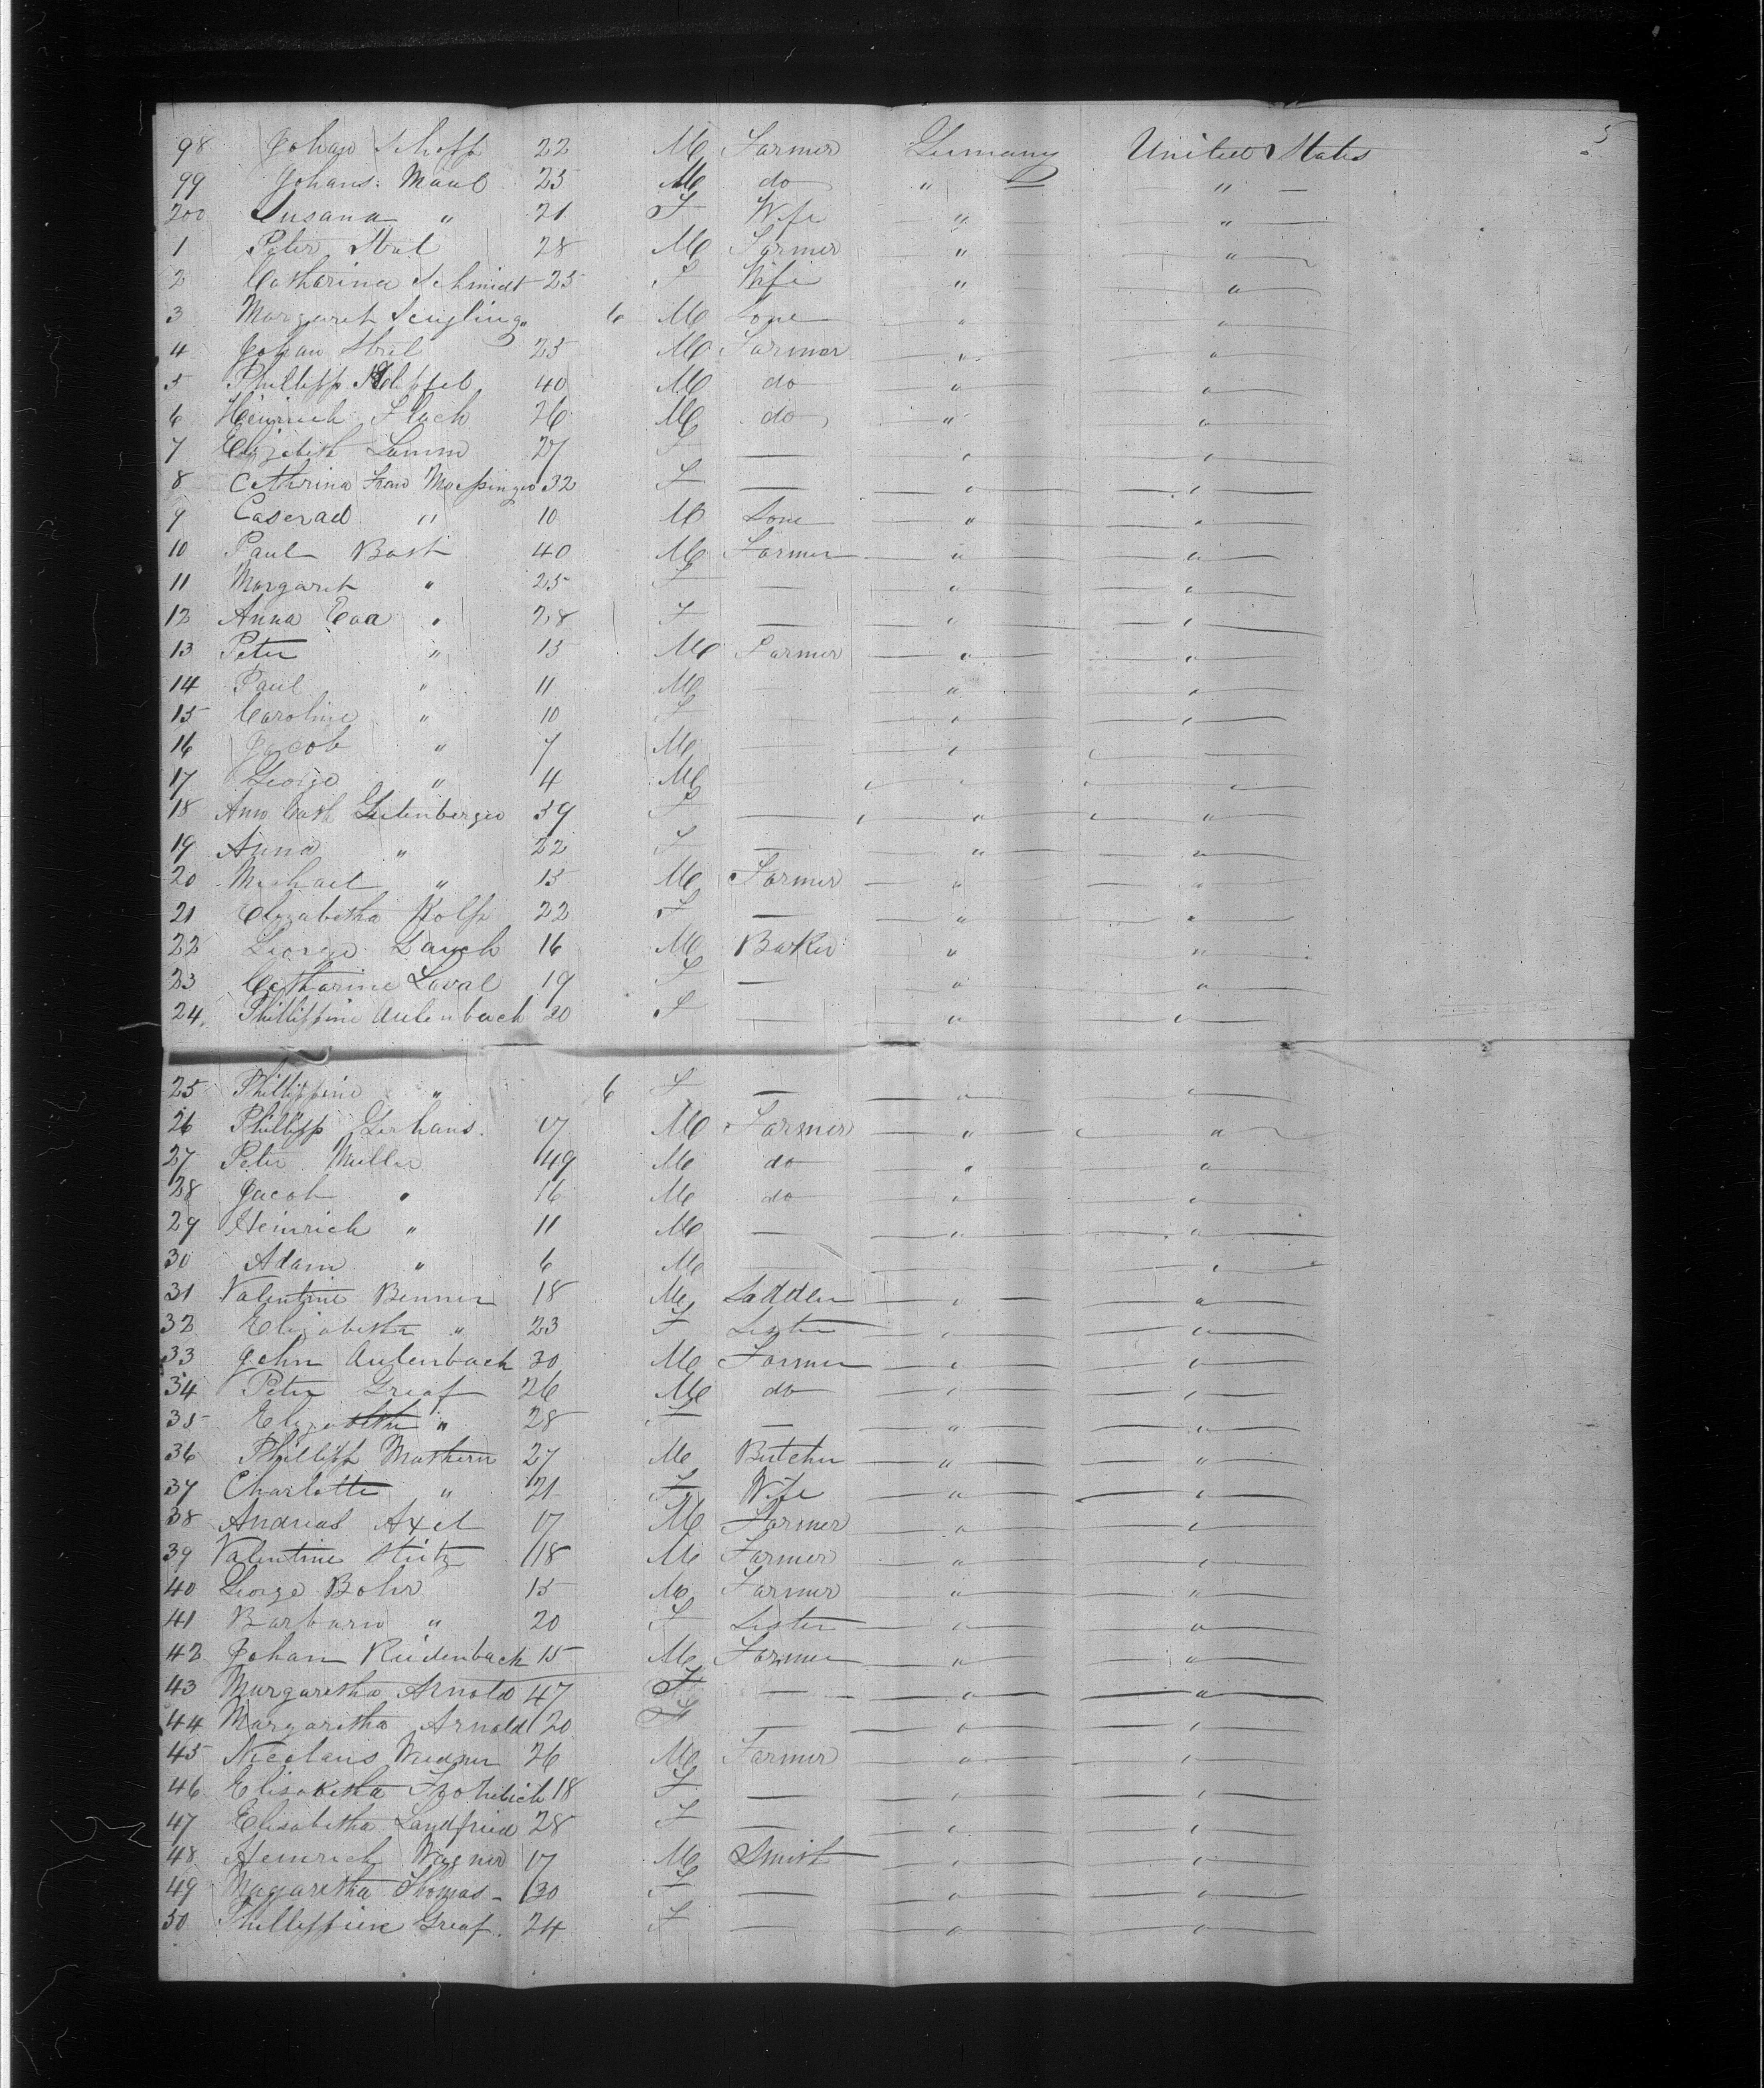 5
98 Johan Schoff 22 M Farmer Germany United States
99 Johans: Maul 25 M do " "
200 Susana " 21 F Wife " "
1 Peter Stral 28 M Farmer " "
2 Catharina Schmidt 25 F Wife " "
3 Margaret 6 M Sone " "
4 Johan Stral 25 M Farmer " "
5 Phillipp 40 M do " "
6 Heinrich Flach 26 M do " "
7 Elizabeth Lamm 27 F — " "
8 Cathrina Frau 32 F — " "
9 " 10 M Sone " "
10 Paul Bast 40 M Farmer " "
11 Margaret " 25 F — " "
12 Anna Eva " 28 F — " "
13 Peter " 15 M Farmer " "
14 Paul " 11 M — " "
15 Caroline " 10 F — " "
16 Jacob " 7 M — "
17 George " 4 M — " "
18 Ann Cath 39 F — " "
19 Anna " 22 F — " "
20 Michael " 15 M Farmer " "
21 Elizabetha 22 F — " "
22 George Lauch 16 M Baker " "
23 Catharine Laval 19 F — " "
24. Phillippine Aulenbach 30 F — " "
25 Phillippine " 6 F — " "
26 Phillipp Gerhans. 17 M Farmer " "
27 Peter Muller 49 M do " "
28 Jacob " 16 M do " "
29 Heinrich " 11 M — " "
30 Adam " 6 M — "
31 Valentine Benner 18 M Saddler " "
32 Elizabetha " 23 F Sister " "
33 John Aulenbach 30 M Farmer " "
34 Peter Greaf 26 M do " "
35 Elizabetha " 28 F — " "
36 Phillipp Mathern 27 M Butcher " "
37 Charlotte " 21 F Wife " "
38 Andreas Axel 17 M Farmer " "
39 Valentine Stutz 18 M Farmer " "
40 George Bohr 15 M Farmer " "
41 Barbara " 20 F Sister " "
42 Johan Riedenbach 15 M Farmer " "
43 Margaretha Arnold 47 F — " "
44 Margaretha Arnold 20 F — " "
45 Nicolaus 26 M Farmer " "
46 Elisabetha 18 F — " "
47 Elisabetha Landfried 28 F — " "
48 Heinrich Wagner 17 M Smith " "
49 Magaretha Thomas 30 F — " "
50 Phillippine Greaf. 24 F — " "